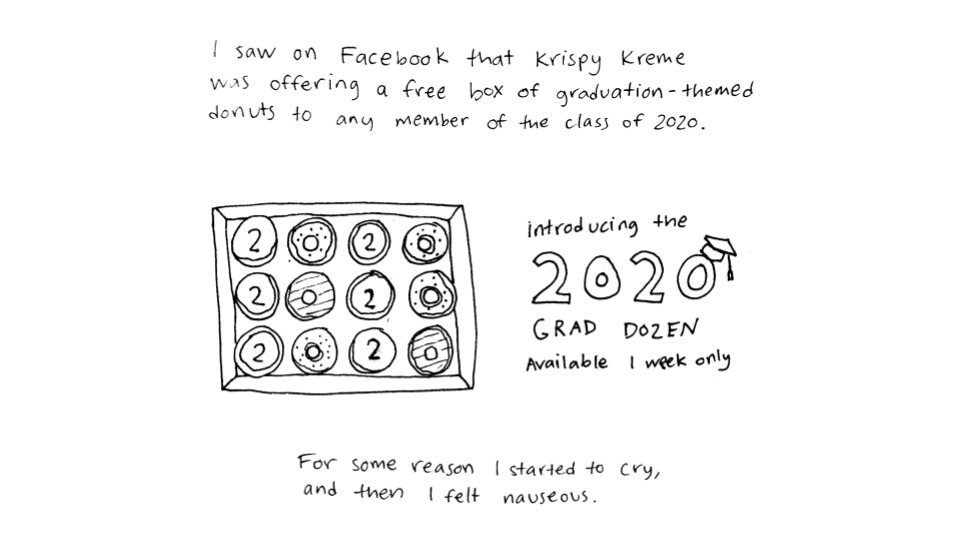 I saw on Facebook that Krispy Kreme
was offering a free box of graduation-themed
donuts to any member of the class of 2020.
2 2
2 2
2 2
introducing the
2020
GRAD DOZEN
Available 1 week only
For some reason I started to cry,
and then I felt nauseous.